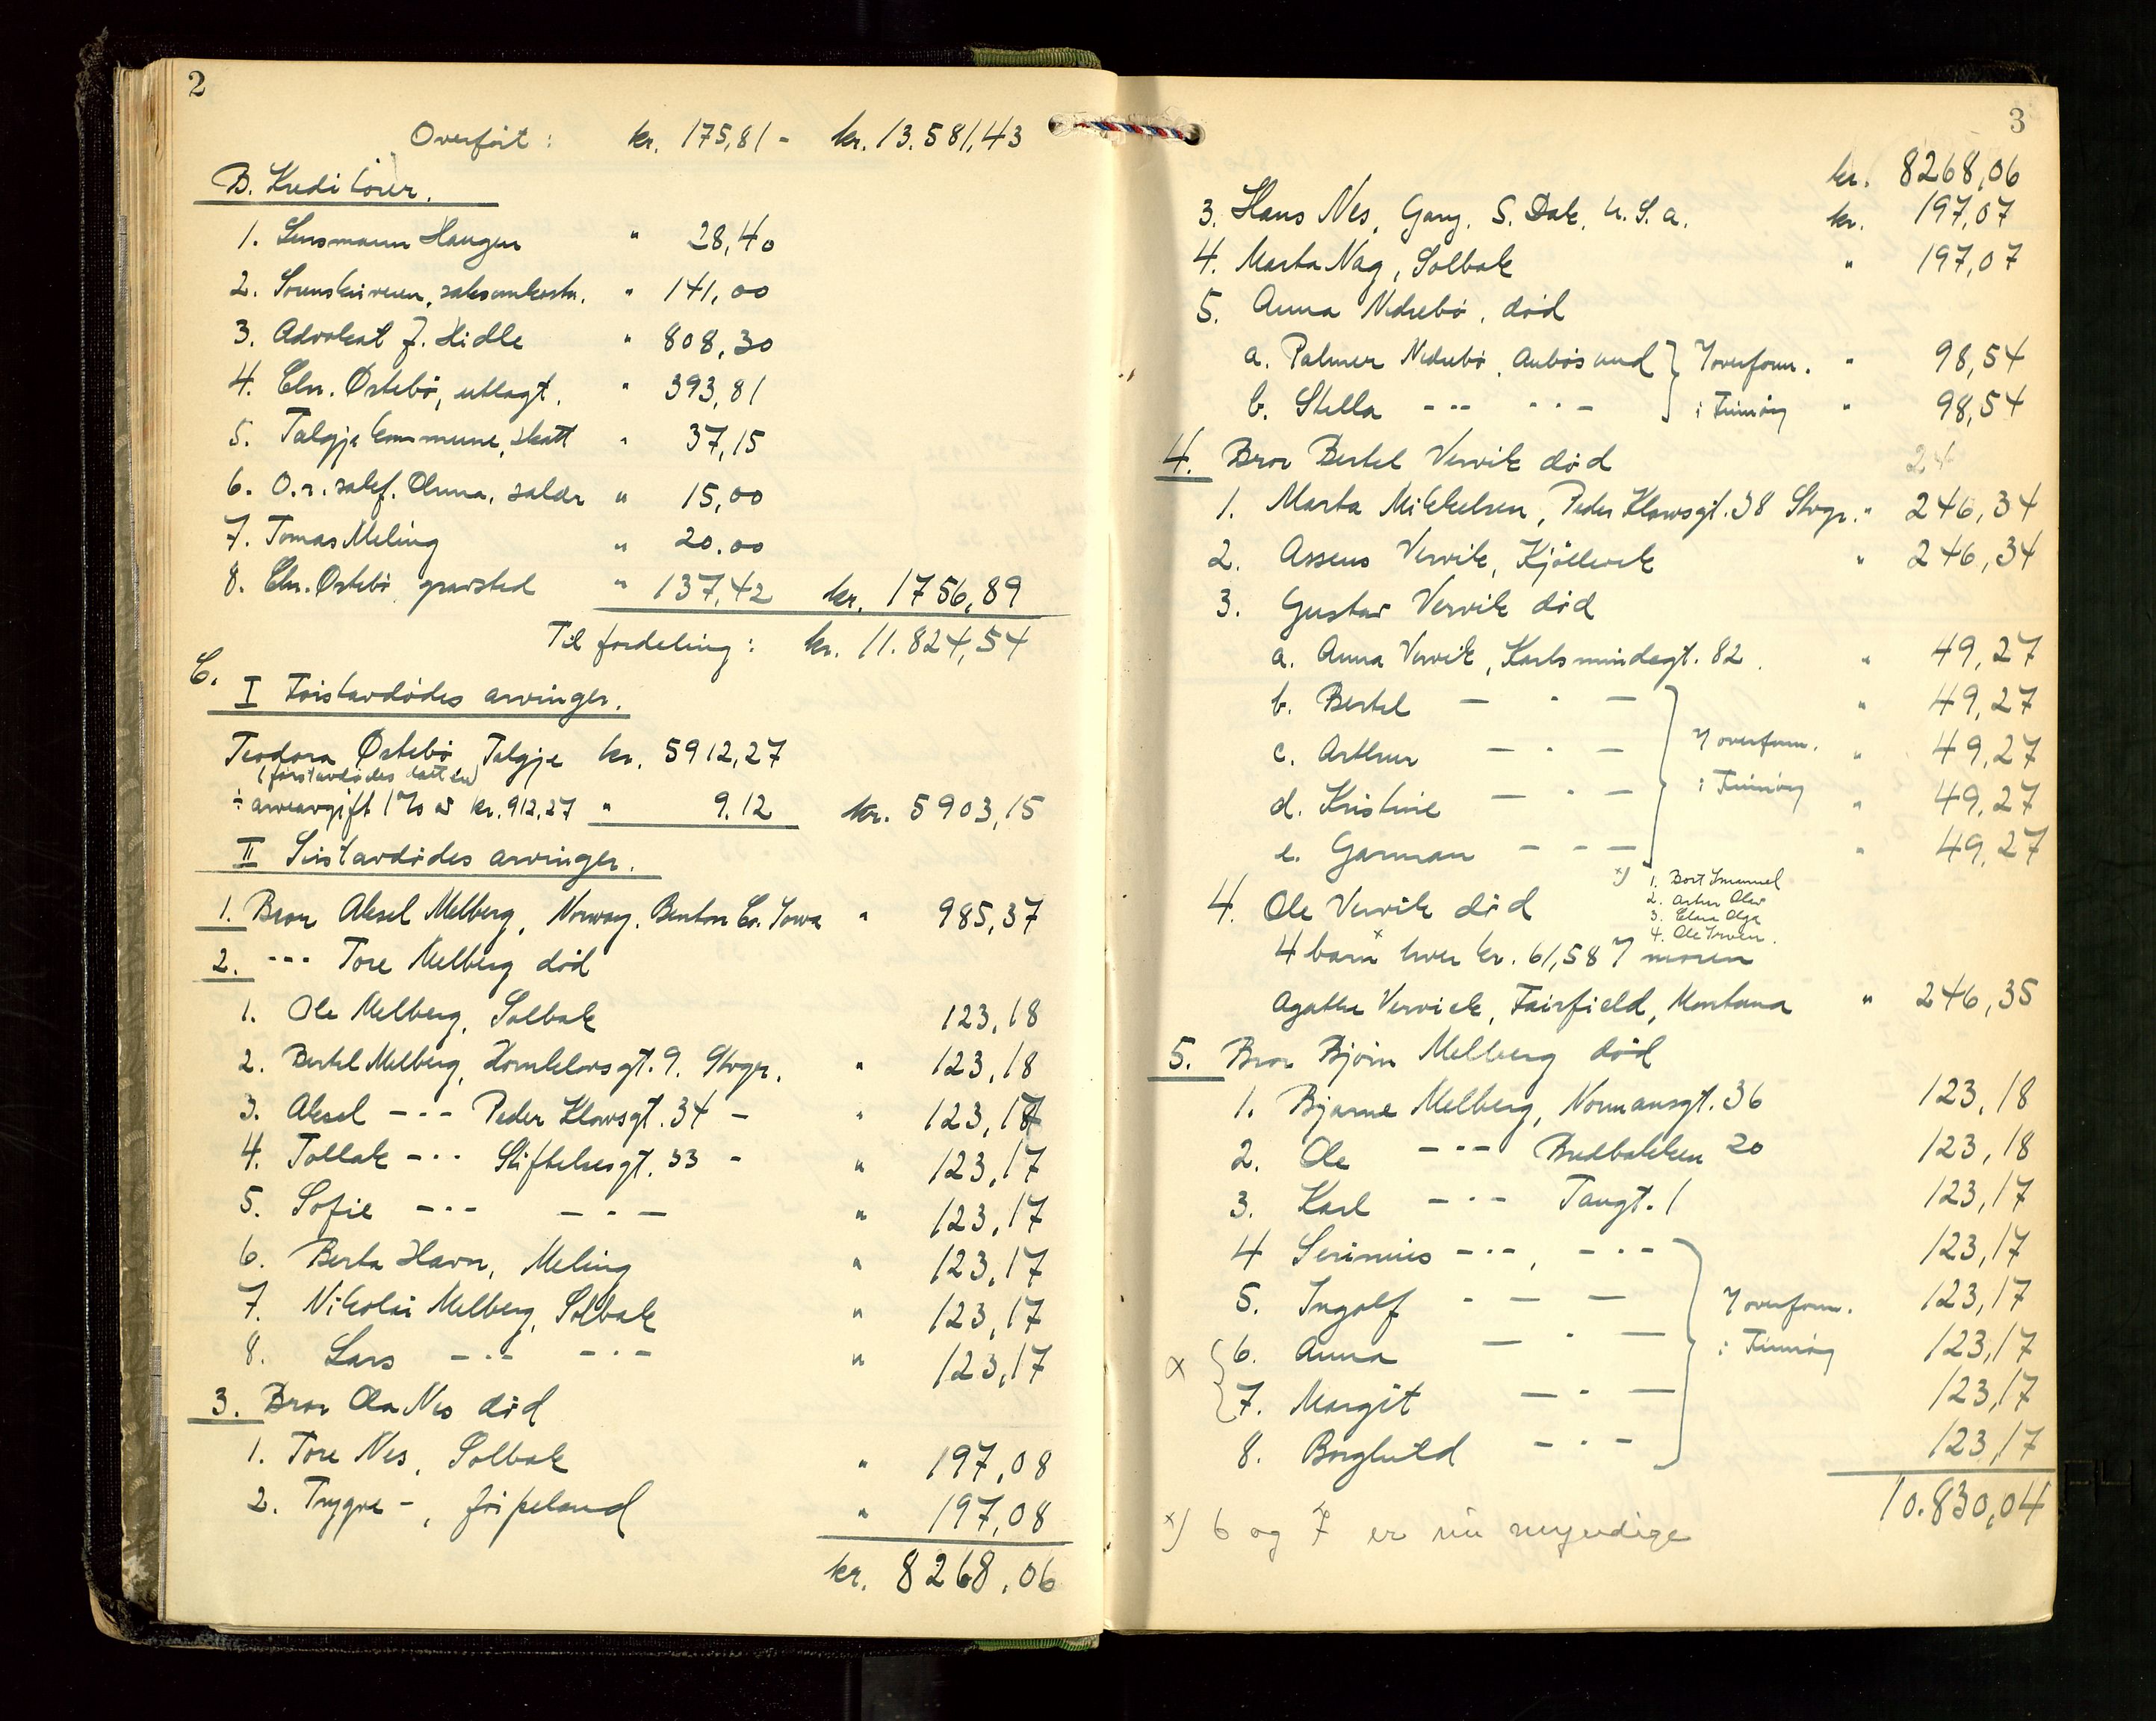 2
Overført: kr. 175,81 - kr. 13.581,43
B. Kreditorer.
1. Lensmann Haugen " 28,40
2. Sorenskriveren, saksomkostn. " 141,00
3. Advokat J. Hidle " 808,30
4. Chr. Østebø, utlagt. " 393,81
5. Talgje kommune, skatt " 37,15
6. O.r. sakf. saldo " 15,00
7. Tomas Meling " 20.00
8. Chr. Østebø gravsted " 137,42 kr. 1756,89
Til fordeling: kr. 11.824,54
C.
I Førstavdødes arvinger.
Teodora Østebø, Talgje kr. 5912,27
(førstavdødes datter)
÷ arveavgift 1% av kr. 912,27 " 9.12 kr. 5903,15
II Sistavdødes arvinger.
1. Bror Aksel Melberg, Norway, Benton Co. Iowa " 985,37
2. -"- Tore Melberg død
1. Ole Melberg, Solbak 123,18
2. Bertel Melberg, Kornklovsgt. 9. Stvgr. " 123,18
3. Aksel -"- Peder Klowsgt. 34 - " 123,17
4. Tollak -"- Stiftelsesgt. 33 - " 123,17
5. Sofie -"- -"- " 123,17
6. Berta Havn, Meling " 123,17
7. Nikolai Melberg, Solbak " 123,17
8. Lars -"- -"- " 123,17
3. Bror Ola Nes død
1. Tore Nes, Solbak " 197,08
2. Trygve -, Jørpeland " 197,08
kr. 8268,06
3
kr. 8268,06
3. Hans Nes, Gary, S. Dak, U.S.a. kr. 197,07
4. Marta Nag, Solbak " 197,07
5. Anna Nedrebø, død
a. Palmer Nedrebø, Aubøsund } % overform. " 98,54
b. Stella -"- -"- } i Finnøy " 98,54
4. Bror Bertel Vervik død
1. Marta Mikkelsen, Peder Klowsgt. 38 Stvgr. " 246,34
2. Assens Vervik, Kjøllevik " 246,34
3. Gustav Vervik død
a. Anna Vervik, Karlsmindegt. 82. " 49,27
b. Bertel - " - " 49,27
c. Arthur - " - % overform. " 49,27
d. Kristine - " - i Finnøy " 49,27
e. Garman - " - " 49,27
x) 1. Bert Immanuel
2. Arthur Olav
3. Elma Olga
4. Ole Irven.
4. Ole Vervik død
4 barn x hver kr. 61,58 % moren
Agathe Vervick, Fairfield, Montana " 246,35
5. Bror Bjørn Melberg død
1. Bjarne Melberg, Normansgt. 36 123,18
2. Ole -"- Bredbakken 20 123,18
3. Karl -"- Taugt. 1 123,17
4 Serinius -"-, -"- 123,17
5. Ingolf - " - % overform. 123,17
x { 6. Anna - " - i Finnøy 123,17
7. Margit - " - 123,17
8. Borghild - " - 123,17
10.830,04
x) 6 og 7 er nu myndige